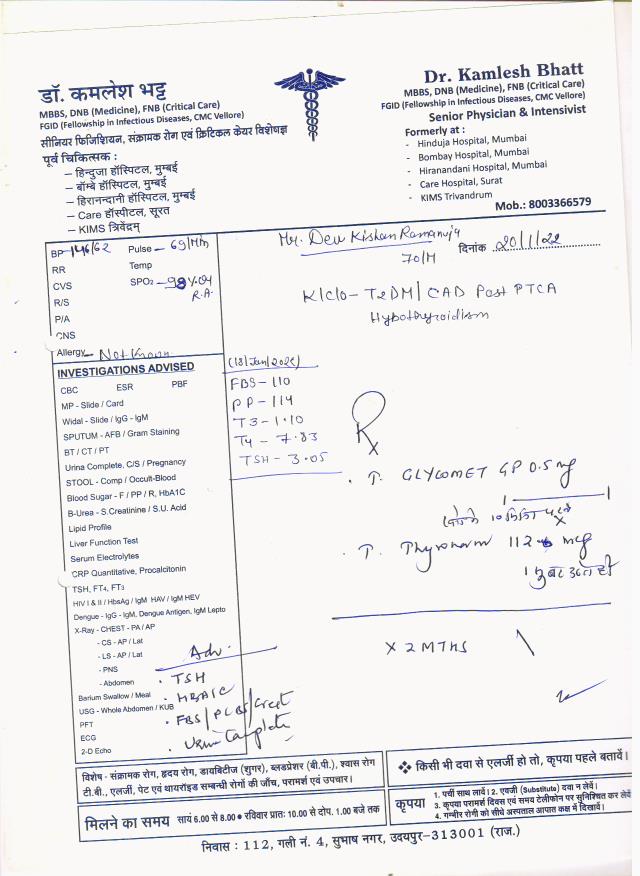 डॉ. कमलेश भट्ट
MBBS, DNB (Medicine), FNB (Critical Care)
FGID (Fellowship in Infectious Diseases, CMC Vellore)
सीनियर फिजिशियन, संक्रामक रोग एवं क्रिटिकल केयर विशेषज्ञ
पूर्व चिकित्सक :
– हिन्दुजा हॉस्पिटल, मुम्बई
– बॉम्बे हॉस्पिटल, मुम्बई
– हिरानन्दानी हॉस्पिटल, मुम्बई
– Care हॉस्पीटल, सूरत
– KIMS त्रिवेंद्रम्
Dr. Kamlesh Bhatt
MBBS, DNB (Medicine), FNB (Critical Care)
FGID (Fellowship in Infectious Diseases, CMC Vellore)
Senior Physician & Intensivist
Formerly at :
- Hinduja Hospital, Mumbai
- Bombay Hospital, Mumbai
- Hiranandani Hospital, Mumbai
- Care Hospital, Surat
- KIMS Trivandrum
Mob.: 8003366579
BP 146/62 Pulse – 69/Min
RR Temp
CVS SPO2 – 98% on
R/S R.A.
P/A
CNS
Allergy – Not Known
Mr. Dev Kishan Ramanuja
दिनांक 20/1/22
70/M
K/C/O – T2DM / CAD Post PTCA
Hypothyroidism
INVESTIGATIONS ADVISED
CBC ESR PBF
MP - Slide / Card
Widal - Slide / IgG - IgM
SPUTUM - AFB / Gram Staining
BT / CT / PT
Urina Complete, C/S / Pregnancy
STOOL - Comp / Occult-Blood
Blood Sugar - F / PP / R, HbA1C
B-Urea - S.Creatinine / S.U. Acid
Lipid Profile
Liver Function Test
Serum Electrolytes
CRP Quantitative, Procalcitonin
TSH, FT4, FT3
HIV I & II / HbsAg / IgM HAV / IgM HEV
Dengue - IgG - IgM, Dengue Antigen, IgM Lepto
X-Ray - CHEST - PA / AP
- CS - AP / Lat
- LS - AP / Lat
- PNS
- Abdomen
Barium Swallow / Meal
USG - Whole Abdomen / KUB
PFT
ECG
2-D Echo
(18/Jan/2022)
FBS – 110
PP – 114
T3 – 1.10
T4 – 7.83
TSH – 3.05
Rx
. T. GLYCOMET GP 0.5 mg
1 ——— 1
. T. Thyronorm 112 mcg
X 2 MTHS
Adv.
. TSH
. HBA1C
. FBS / PLBS / Creat
. Urine Complete
विशेष - संक्रामक रोग, हृदय रोग, डायबिटीज (शुगर), ब्लडप्रेशर (बी.पी.), श्वास रोग
टी.बी., एलर्जी, पेट एवं थायराॅइड सम्बन्धी रोगों की जाँच, परामर्श एवं उपचार।
मिलने का समय सायं 6.00 से 8.00 • रविवार प्रात: 10.00 से दोप. 1.00 बजे तक
❖ किसी भी दवा से एलर्जी हो तो, कृपया पहले बतावें।
कृपया
1. पर्ची साथ लावें। 2. एवजी (Substitute) दवा न लेवें।
3. कृपया परामर्श दिवस एवं समय टेलीफोन पर सुनिश्चित कर लेवें
4. गम्भीर रोगी को सीधे अस्पताल आपात कक्ष में दिखावें।
निवास : 112, गली नं. 4, सुभाष नगर, उदयपुर–313001 (राज.)